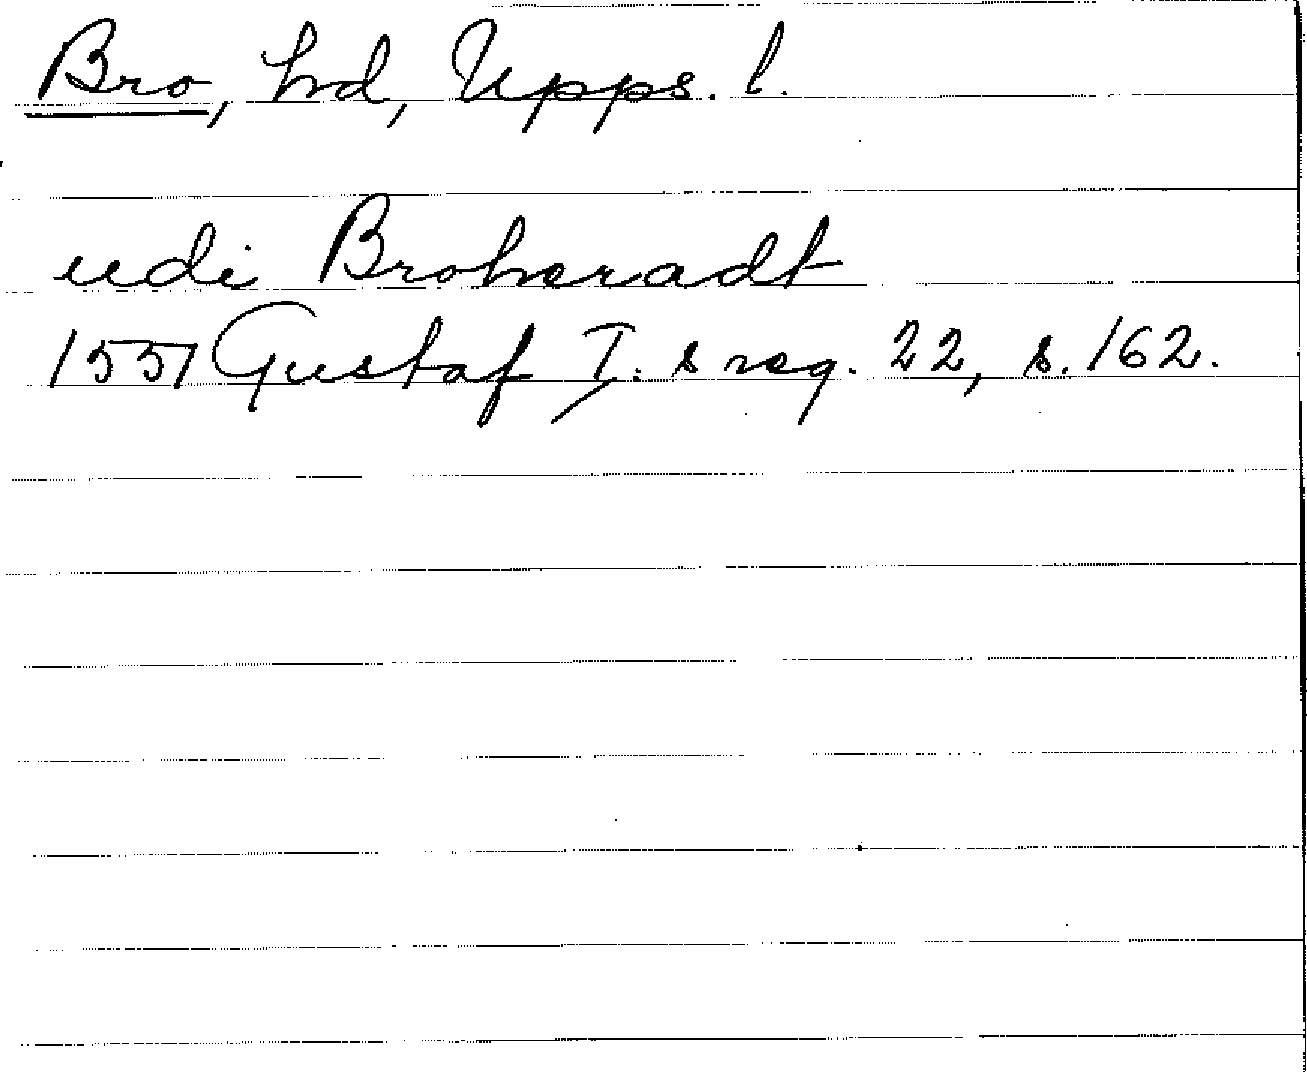 Bro, hd, Upps. l.
udi Broheradt
1551 Gustaf I:s reg. 22, s. 162.